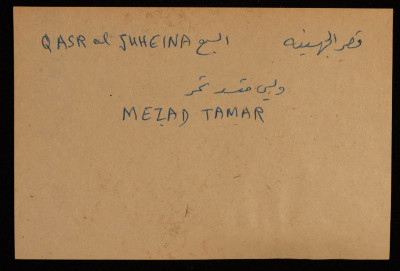 QASR al JUHEINA السبع قصر الجهينه
وليس مقسد تمر
MEZAD TAMAR